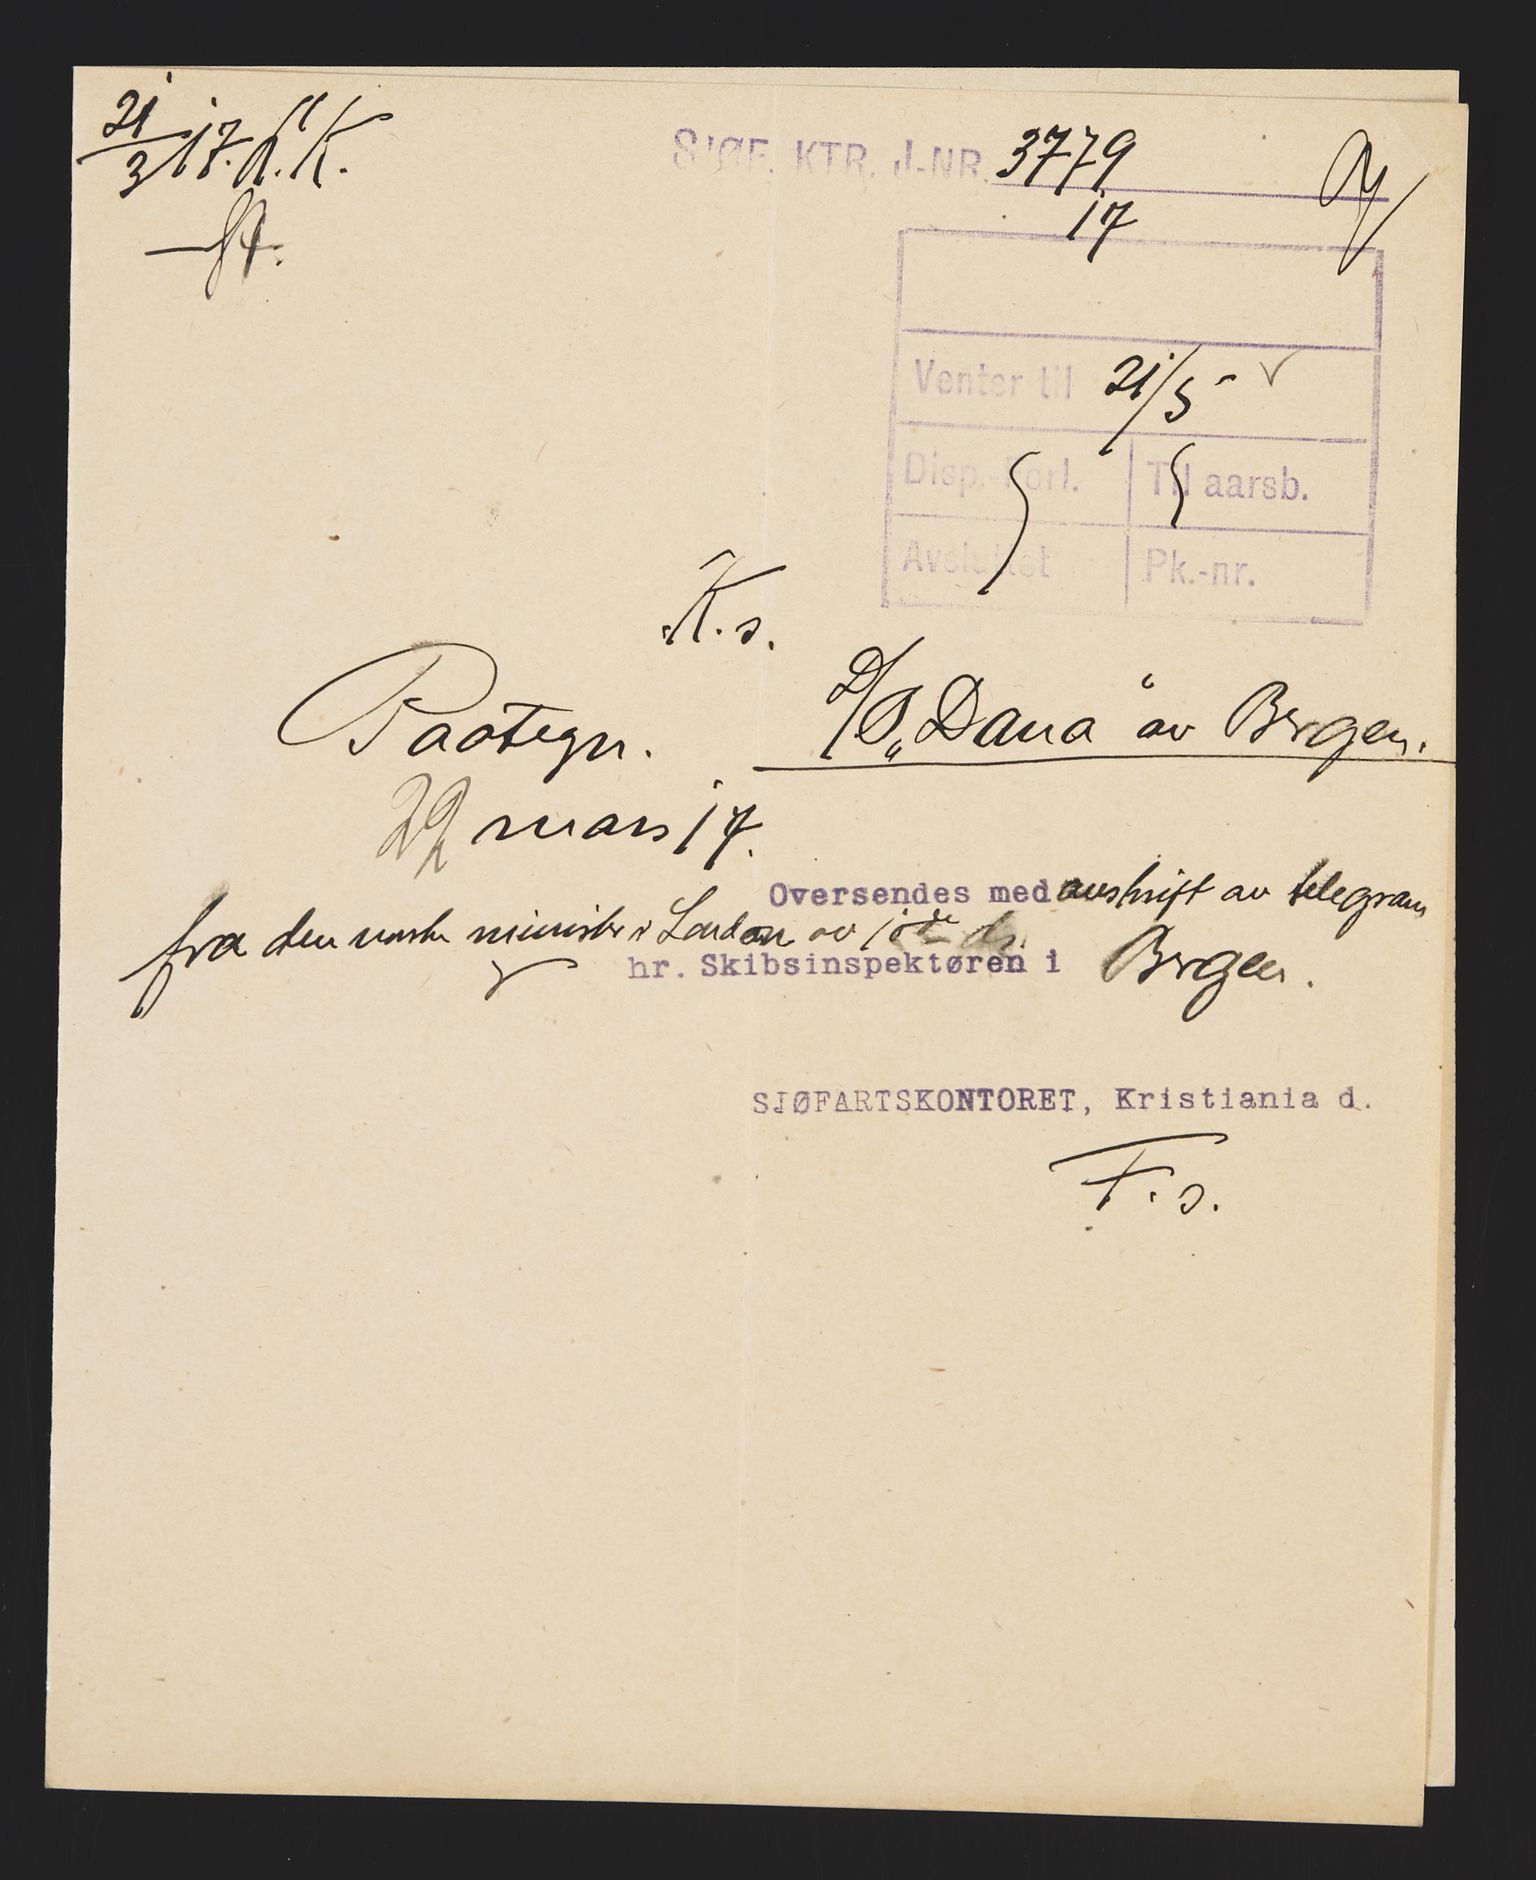 21/3 17. h. K.
SJØF. KTR. J-NR. 3779
17
Venter til 21/5
Disp.-Forl. Til aarsb.
Avsluttet Pk.-nr.
K.s.
Paategn. D/S „Dana" av Bergen.
22 mars 17.
Oversendes med avskrift av telegram
fra den norske minister i London av 16de ds.
hr. Skibsinspektøren i Bergen.
SJØFARTSKONTORET, Kristiania d.
F.s.